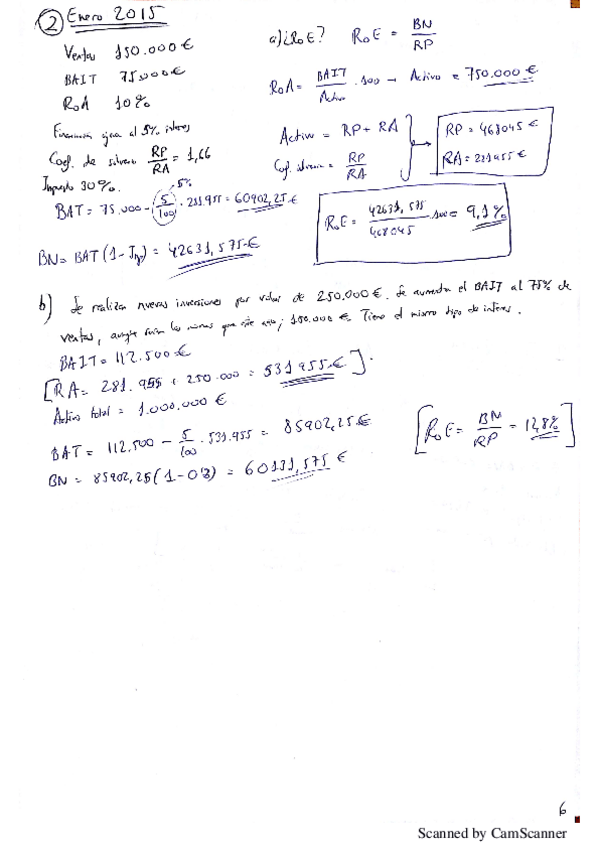 ② Enero 2015
Ventas 150.000€
BAIT 75.000€
RoA 10%
Financiación ajena al 5% interes
Coef. de solvencia RP/RA = 1,66
Impuesto 30%.
a) ¿RoE? RoE = BN/RP
RoA = BAIT/Activo · 100 → Activo = 750.000€
Activo = RP + RA
Coef. solvencia = RP/RA
RP = 468045€
RA = 281955€
5%
BAT = 75.000 - (5/100) · 281.955 = 60902,25€
BN = BAT (1 - Imp) = 42631,575€
RoE = 42631,575/468045 · 100 = 9,1%
b) Se realizan nuevas inversiones por valor de 250.000€. Se aumenta el BAIT al 75% de
ventas, aunque sean las mismas que este año; 150.000€. Tiene el mismo tipo de interes.
BAIT = 112.500€
[RA = 281.955 + 250.000 = 531955€].
Activo total = 1.000.000€
BAT = 112.500 - 5/100 · 531.955 = 85902,25€
BN = 85902,25 (1 - 0'3) = 60131,575€
[RoE = BN/RP = 12,8%]
6
Scanned by CamScanner